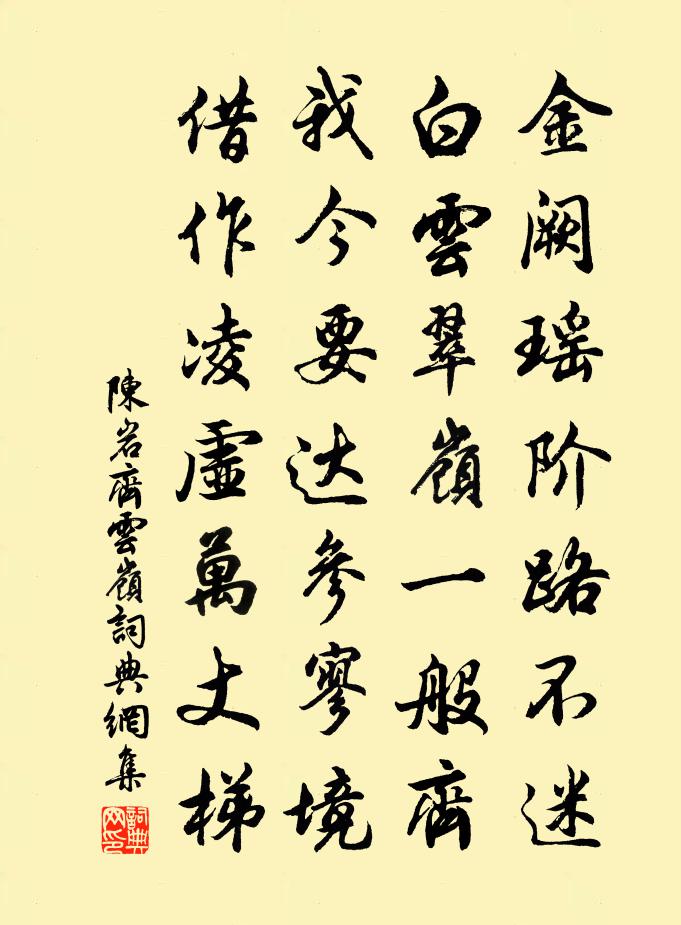 金阙瑶阶路不迷
白雲翠嶺一般齊
我今要达參寥境
借作凌虛萬丈梯
陳岩齊雲嶺詞典網集
詞典网印